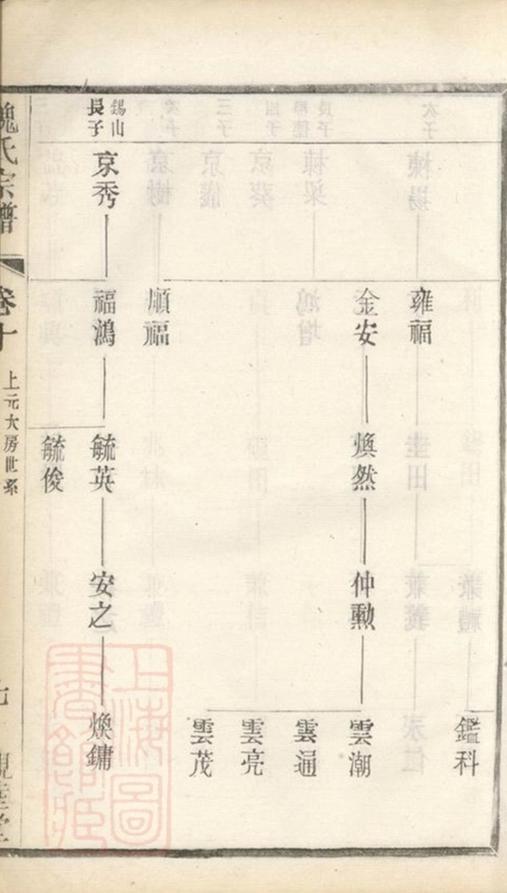 鑑科
雍福
金安
煥然
仲勳
雲潮
雲通
雲亮
雲茂
順福
錫山長子
京秀
福鴻
毓英
安之
煥鏞
毓俊
魏氏宗譜
卷十
上元大房世系